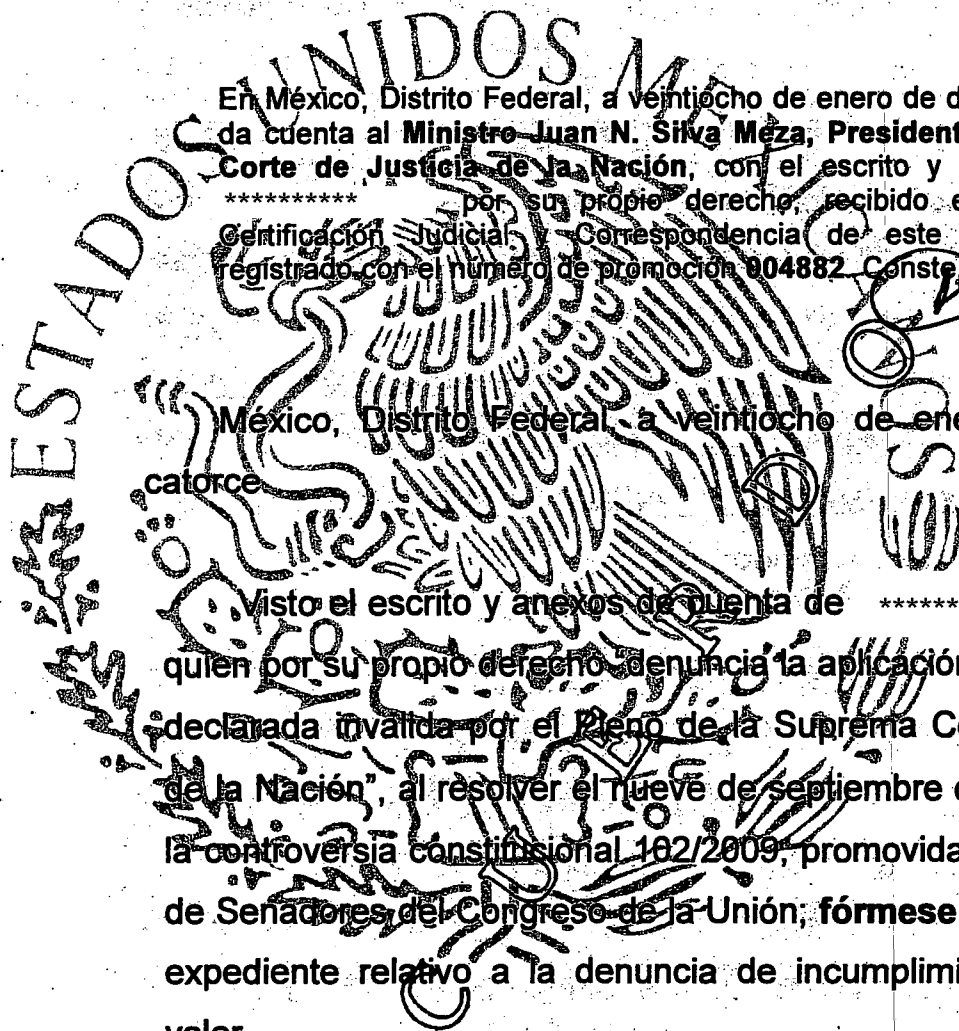 ESTADOS UNIDOS ME
En México, Distrito Federal, a veintiocho de enero de d
da cuenta al Ministro Juan N. Silva Meza, President
Corte de Justicia de la Nación, con el escrito y
********** por su propio derecho, recibido e
Certificación Judicial y Correspondencia de este
registrado con el número de promoción 004882. Conste
México, Distrito Federal, a veintiocho de ene
catorce
Visto el escrito y anexos de cuenta de *******
quien por su propio derecho "denuncia la aplicación
declarada inválida por el Pleno de la Suprema Co
de la Nación", al resolver el nueve de septiembre d
la controversia constitucional 102/2009, promovida
de Senadores del Congreso de la Unión; fórmese
expediente relativo a la denuncia de incumplimi